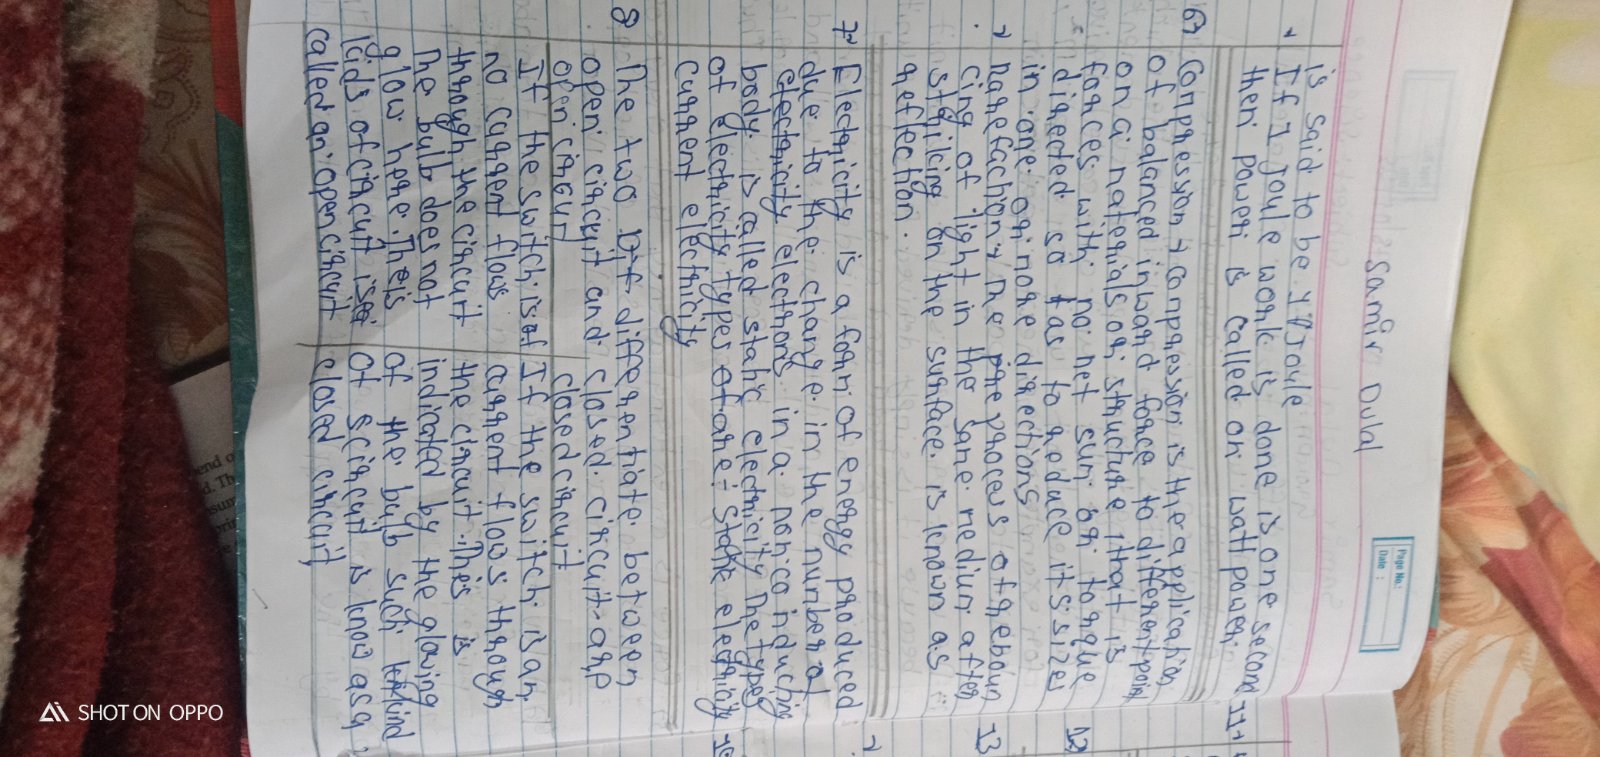 Samir Dulal
Page No.:
Date :
is said to be 1 Joule
If 1 joule work is done is one second
then power is called on watt power.
6→ Compression → compression is the application
of balanced inward force to different point
on a material or structure, that is
forces with no net sum or torque
directed so tas to reduce its size
in one or more directions
→ rarefaction → the process of reboun
cing of light in the same medium after
striking on the surface is known as
reflection.
7→ Electricity is a form of energy produced
due to the change in the number of
electricity electrons in a nonconducting
body is called static electricity the types
of electricity types of are :- Static electricity
current electricity
8 The two Dif differentiate between
open circuit and closed circuit are
open circuit
closed circuit
If the switch is of
no current flows
through the circuit
The bulb does not
glow here. This
kids of circuit is
called an open circuit
If the switch is an
current flows through
the circuit. This is
indicated by the glowing
of the bulb such kind
of circuit is know as a
closed circuit
11→
12
13
end o
d. Th
SHOT ON OPPO